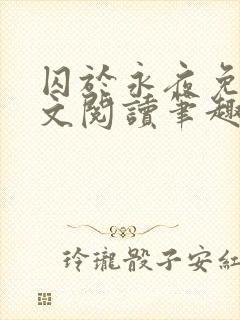 囚於永夜免
文閱讀筆趣
玲瓏骰子安紅